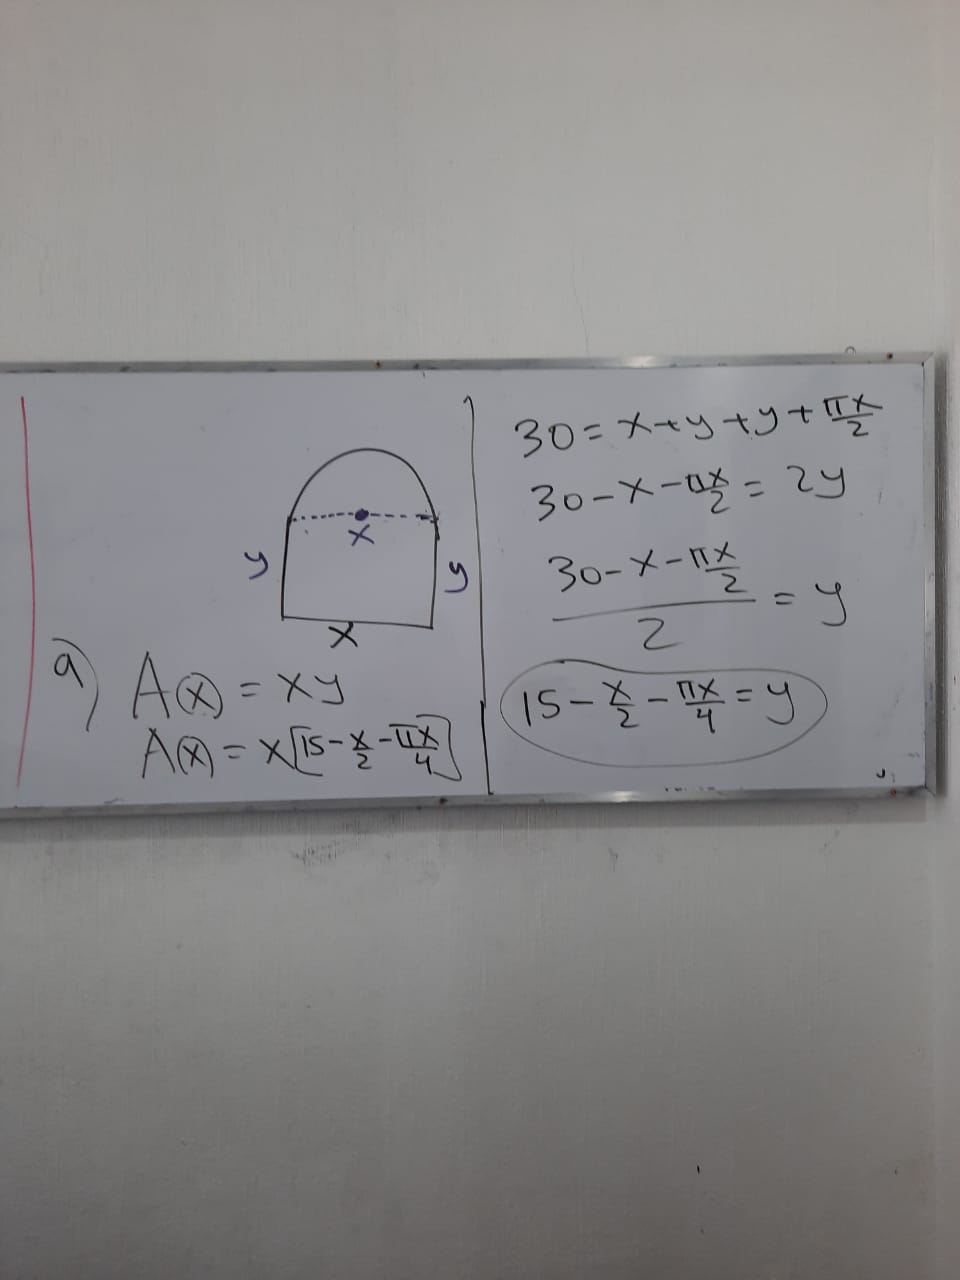 x
y
y
x
a) A(x) = xy
A(x) = x[15 - x/2 - πx/4]
30 = x + y + y + πx/2
30 - x - πx/2 = 2y
(30 - x - πx/2)/2 = y
15 - x/2 - πx/4 = y